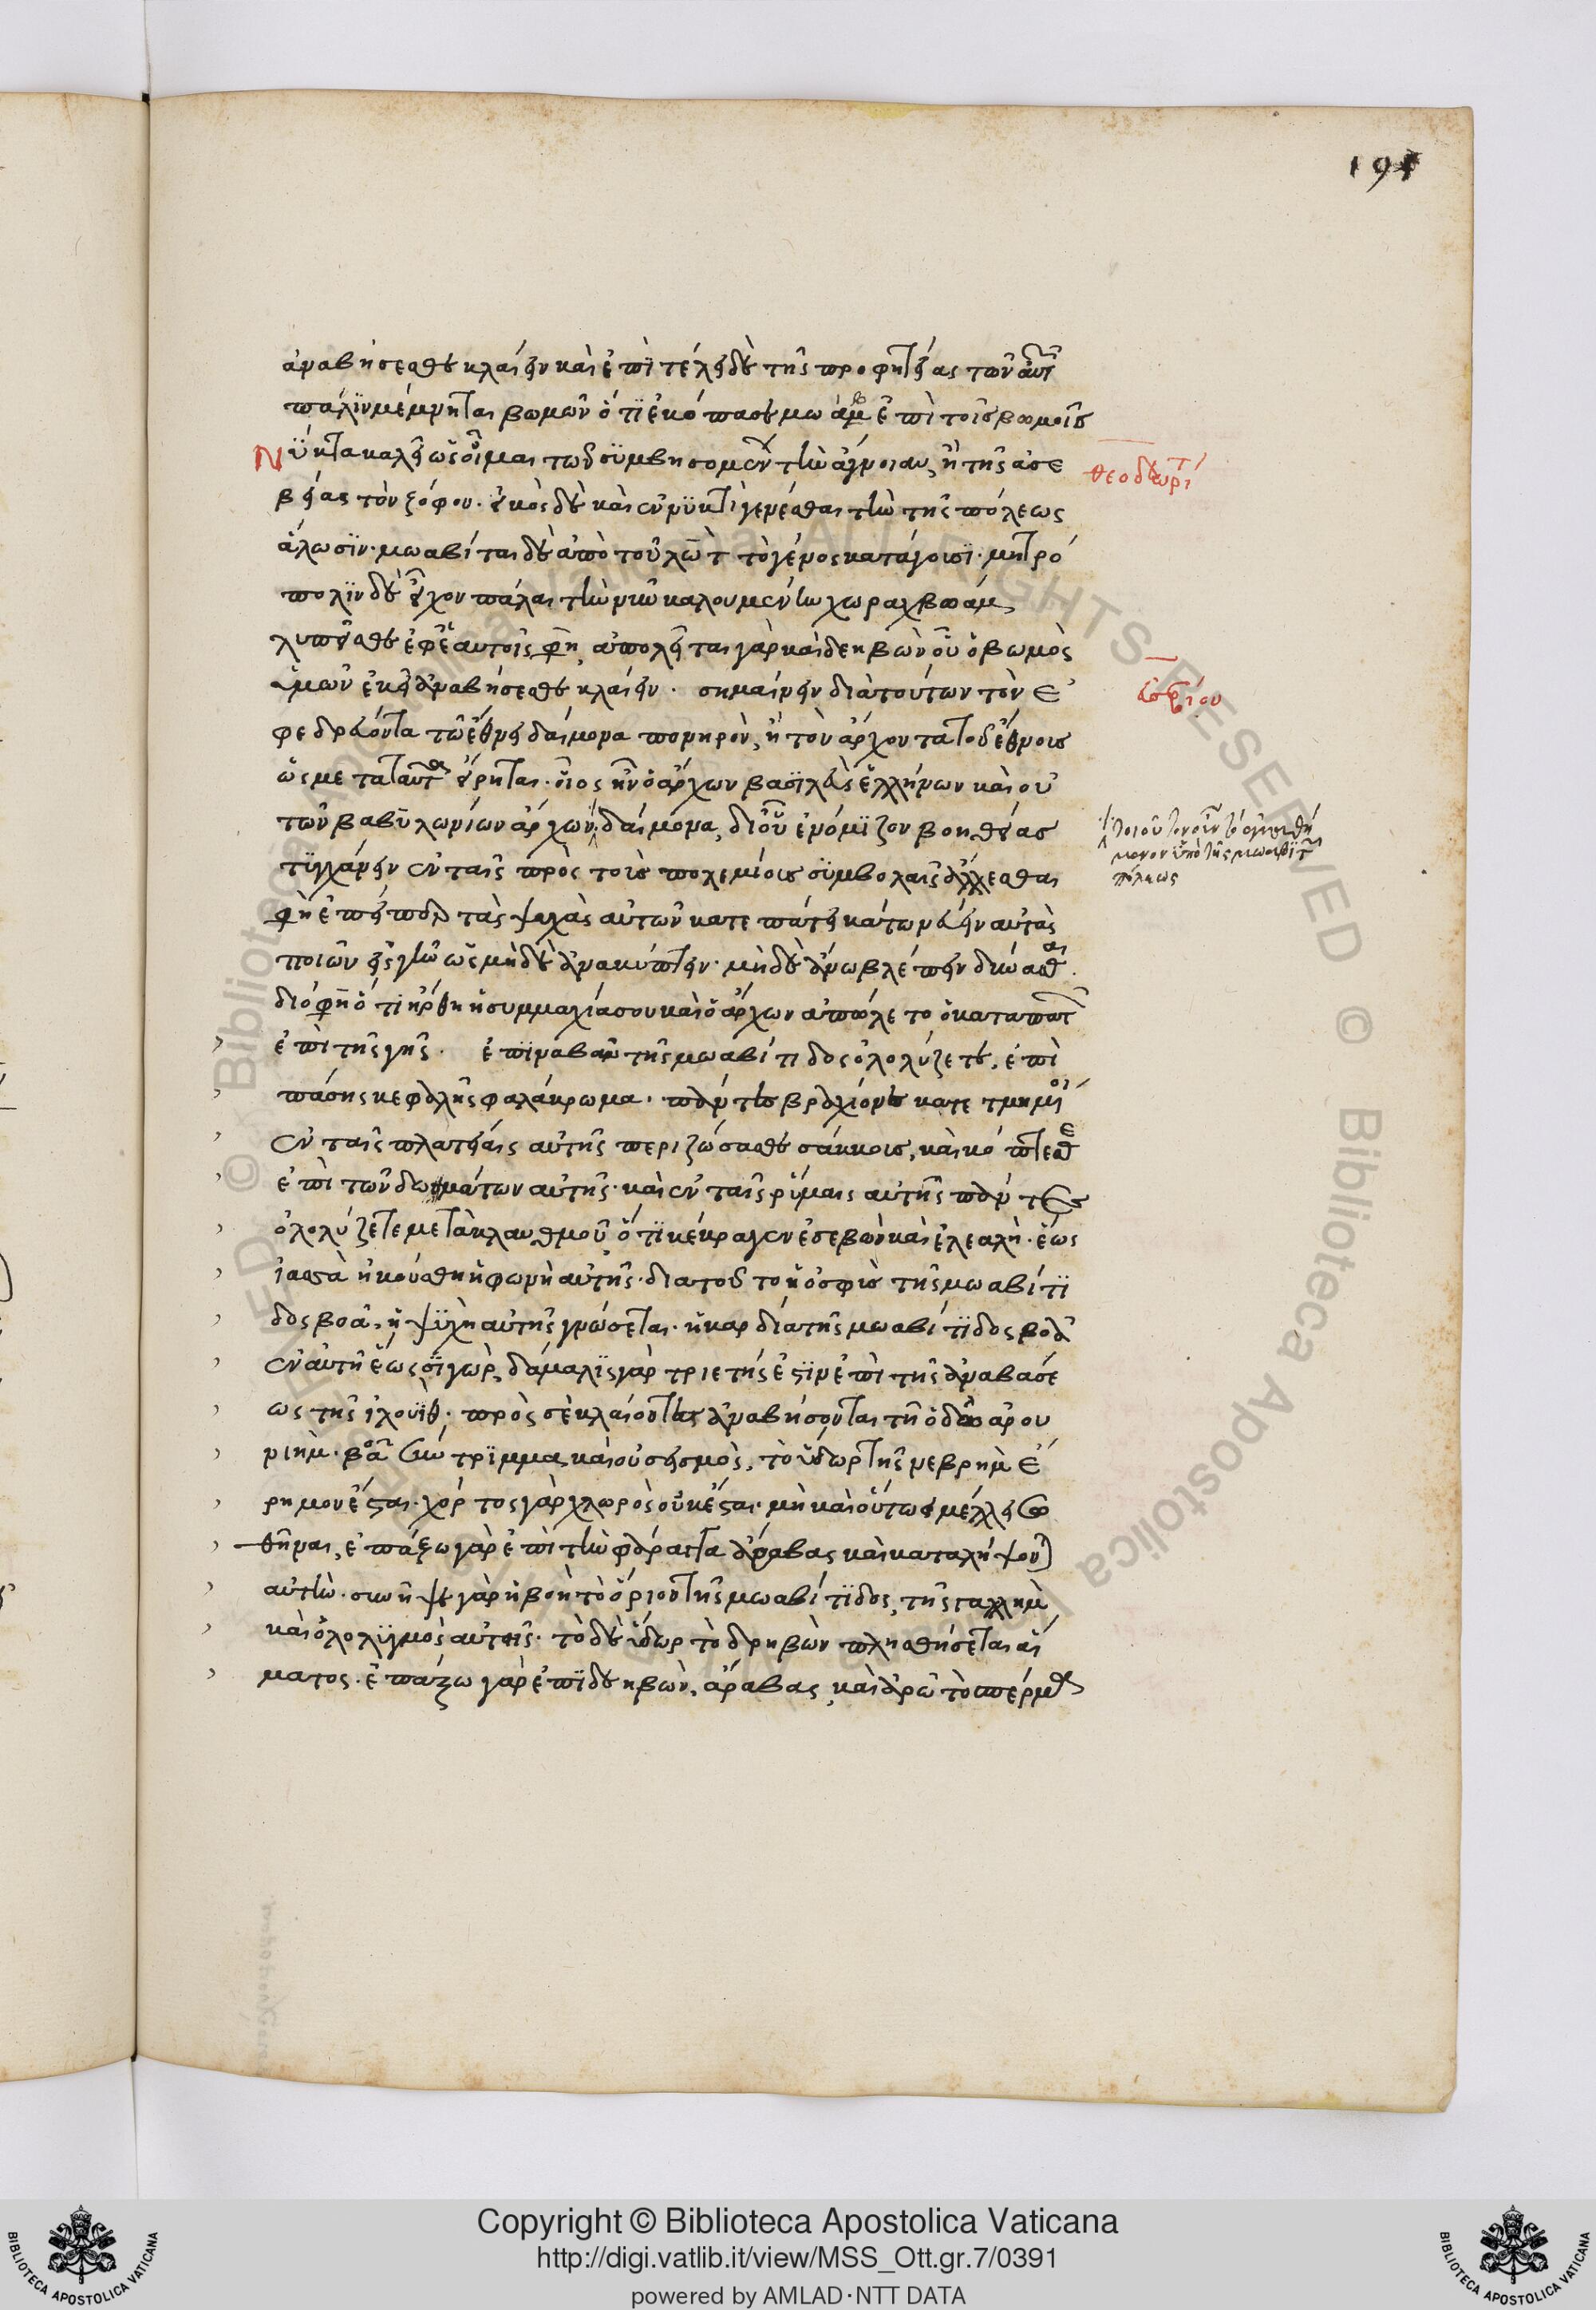 191
ἀναβήσεσθε κλαίειν καὶ ἐπὶ τέλει δὲ τῆς προφητείας τῶν αὐτ
πάλιν μέμνηται βωμῶν ὅτι ἐκόπασε μωὰβ ἐπὶ τοῖς βωμοῖς
Νύκτα καλεῖ ὡς οἶμαι τῶν συμβησομένων τὴν ἄγνοιαν, ἢ τῆς ἀσε
βείας τὸν ζόφον. εἰκὸς δὲ καὶ ἐν νυκτὶ γενέσθαι τὴν τῆς πόλεως
ἅλωσιν. μωαβίται δὲ ἀπὸ τοῦ λὼτ τὸ γένος κατάγουσι. μητρό
πολιν δὲ εἶχον πάλαι τὴν νῦν καλουμένην χαραχβωάμ,
λυπεῖσθε ἐφ' ἑαυτοῖς φη, ἀπολεῖται γὰρ καὶ δεηβὼν οὗ ὁ βωμὸς
ὑμῶν ἐκεῖ ἀναβήσεσθε κλαίειν. σημαίνειν διὰ τούτων τὸν ἐ
φεδρεύοντα τῷ ἔθνει δαίμονα πονηρὸν, ἢ τὸν ἄρχοντα τοῦ ἔθνους
ὡς μετὰ ταῦτα εἴρηται. οἷος ἦν ὁ ἄρχων βασιλεὺς ἑλλήνων καὶ ου
τῶν βαβυλωνίων ἀρχων. δαίμονα, δι' οὗ ἐνόμιζον βοηθείας
τυγχάνειν ἐν ταῖς πρὸς τοὺς πολεμίους συμβολαῖς ἐλέγχεσθαι
φὴ ἐπείπερ τὰς ψυχὰς αὐτῶν κατεπάτει κάτω νεύειν αὐτὰς
ποιῶν εἰς γῆν ὡς μὴ δὲ ἀνακύπτειν. μὴ δὲ ἄνω βλέπειν δύνασθαι.
διό φη ὅτι ἤρθη ἡ συμμαχία σου καὶ ὁ ἄρχων ἀπώλετο ὁ καταπατ
ἐπὶ τῆς γῆς. ἐπὶ ναβαῦ τῆς μωαβίτιδος ὀλολύζετε, ἐπὶ
πάσης κεφαλῆς φαλάκρωμα. πάντες βραχίονες κατετμημένοι
ἐν ταῖς πλατείαις αὐτῆς περιζώσασθε σάκκους, καὶ κόπτεσθε
ἐπὶ τῶν δωμάτων αὐτῆς. καὶ ἐν ταῖς ῥύμαις αὐτῆς πάντες
ὀλολύζετε μετὰ κλαυθμοῦ, ὅτι κέκραγεν ἐσεβὼν καὶ ἐλεαλὴ. ἕως
ἰασσὰ ἠκούσθη ἡ φωνὴ αὐτῆς. διὰ τοῦτο ἡ ὀσφὺς τῆς μωαβίτι
δος βοᾷ, ἡ ψυχὴ αὐτῆς γνώσεται. ἡ καρδία τῆς μωαβίτιδος βοᾷ
ἐν αὐτῇ ἕως σηγὼρ, δάμαλις γὰρ τριετής ἐστιν ἐπὶ τῆς ἀναβάσε
ως τῆς λουὶθ. πρὸς σὲ κλαίοντες ἀναβήσονται τῇ ὁδῷ ἀρου
ριὴμ. βοᾷ σύντριμμα καὶ σεισμὸς, τὸ ὕδωρ τῆς νεβρὴμ ἔ
ρημον ἔσται. χόρτος γὰρ χλωρὸς οὐκ ἔσται. μὴ καὶ οὕτως μέλλει σω
θῆναι, ἐπάξω γὰρ ἐπὶ τὴν φάραγγα ἄραβας καὶ καταλήψονται
αὐτὴν. συνῆψε γὰρ ἡ βοὴ τὸ ὅριον τῆς μωαβίτιδος, τῆς γαλλὴμ
καὶ ὀλολυγμὸς αὐτῆς. τὸ δὲ ὕδωρ τὸ δρηβὼν πλησθήσεται αἵ
ματος. ἐπάξω γὰρ ἐπὶ δεηβὼν, ἄραβας, καὶ ἀρῶ τὸ σπέρμα
θεοδωρίτ
εὐσεβίου
πόλεως
Copyright © Biblioteca Apostolica Vaticana
http://digi.vatlib.it/view/MSS_Ott.gr.7/0391
powered by AMLAD·NTT DATA